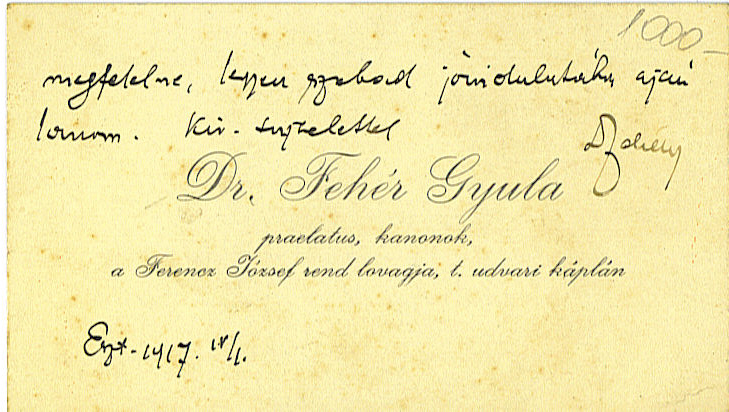 1000-
megfelelne, legyen szabad jóindulatába aján
lanom. Kiv. tisztelettel
Dr. Fehér Gyula
praelatus, kanonok,
a Ferencz József rend lovagja, t. udvari káplán
Eszt. 1917. IV/1.